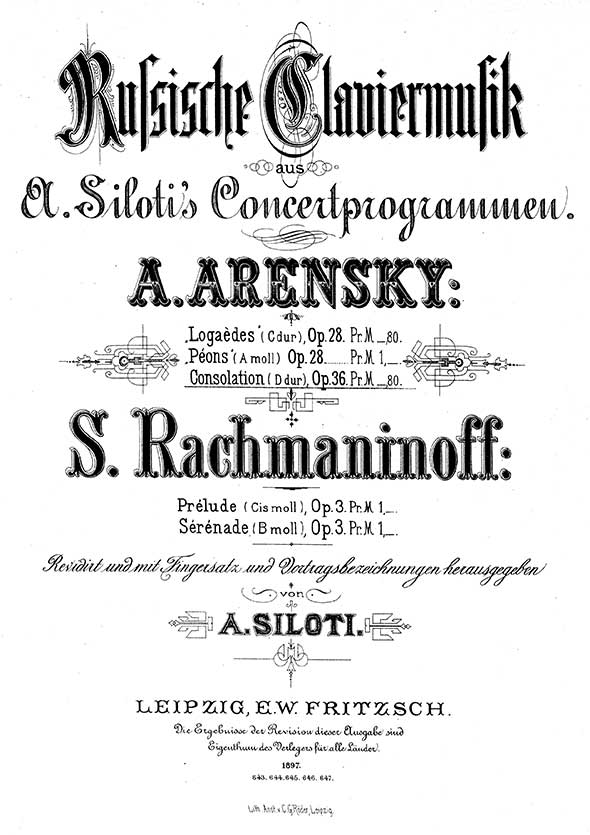 Russische Claviermusik
aus
A. Siloti's Concertprogrammen.
A. ARENSKY:
„Logaèdes“ (C dur), Op. 28. Pr. M _,80.
„Péons“ (A moll) Op. 28. Pr. M 1,_.
Consolation (D dur), Op. 36. Pr. M _,80.
S. Rachmaninoff:
Prélude (Cis moll), Op. 3. Pr. M 1,_.
Sérénade (B moll), Op. 3. Pr. M 1,_.
Revidirt und mit Fingersatz und Vortragsbezeichnungen herausgegeben
von
A. SILOTI.
LEIPZIG, E.W. FRITZSCH.
Die Ergebnisse der Revision dieser Ausgabe sind
Eigenthum des Verlegers für alle Länder.
1897.
643. 644. 645. 646. 647.
Lith. Anst. v. C. G. Röder, Leipzig.